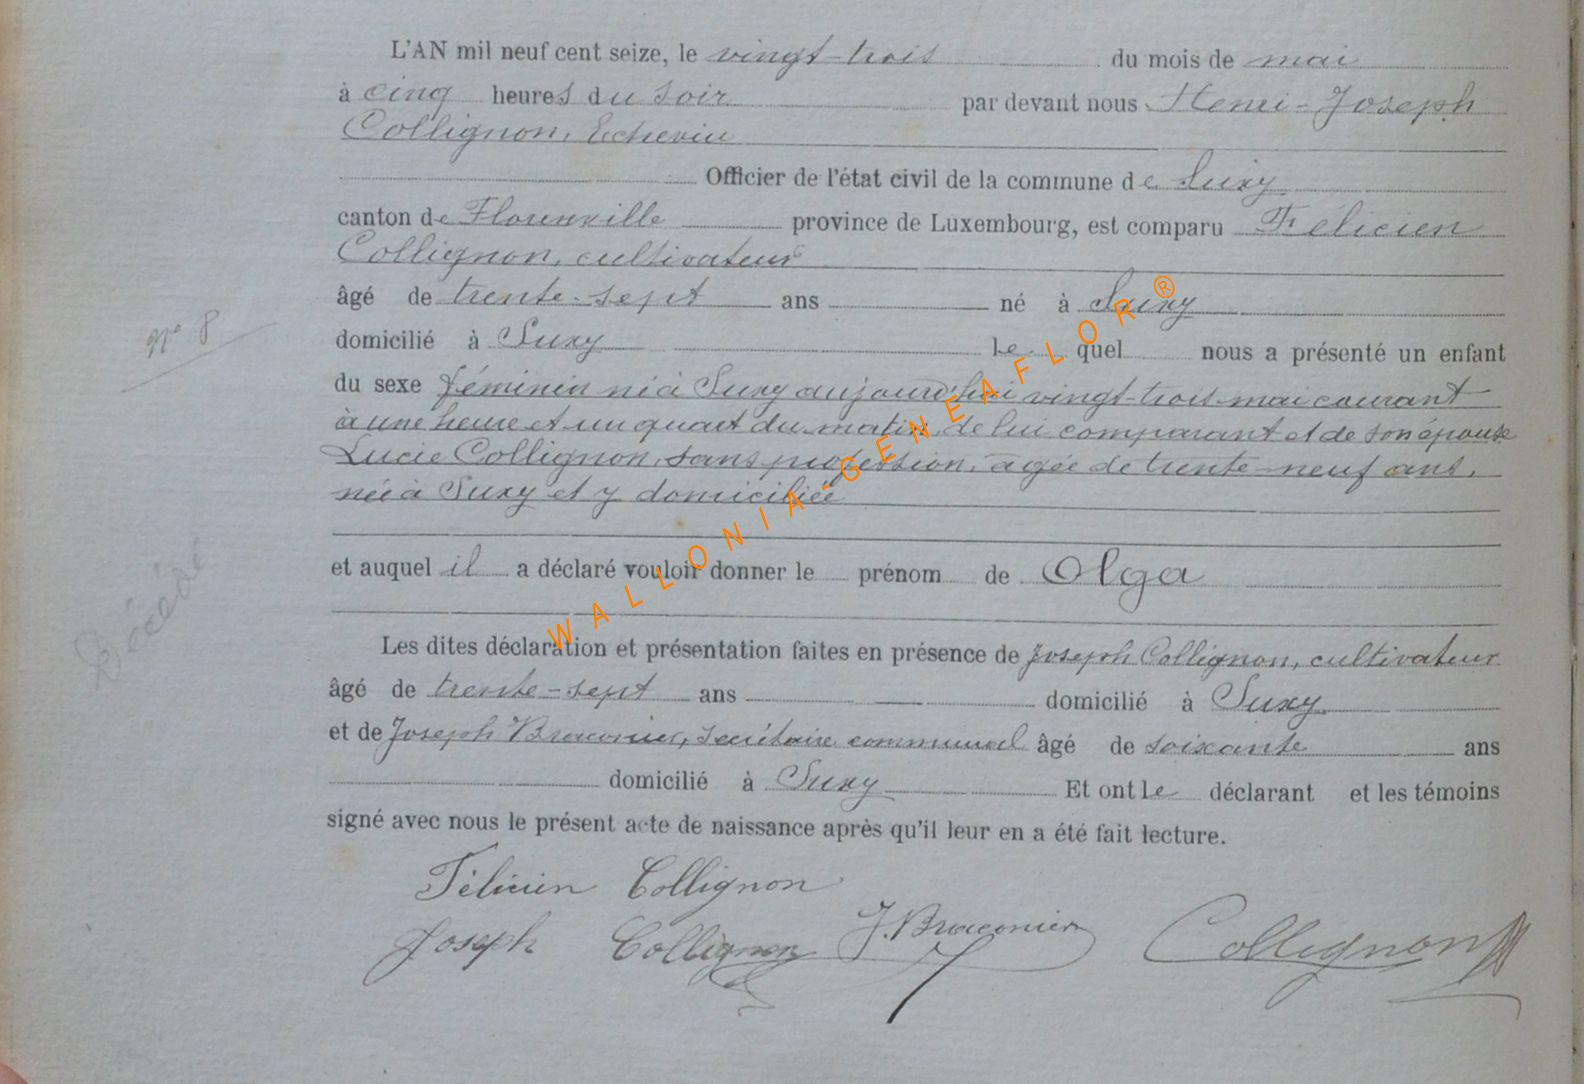 L'AN mil neuf cent seize, le vingt-trois du mois de mai
à cinq heures du soir par devant nous Henri-Joseph
Collignon, Echevin
Officier de l'état civil de la commune de Suxy
canton de Florenville province de Luxembourg, est comparu Félicien
Collignon, cultivateur
âgé de trente-sept ans né à Suxy
domicilié à Suxy lequel nous a présenté un enfant
N° 8
du sexe féminin né à Suxy aujourd'hui vingt-trois mai courant
à une heure et un quart du matin, de lui comparant et de son épouse
Lucie Collignon, sans profession, âgée de trente-neuf ans,
née à Suxy et y domiciliée
et auquel il a déclaré vouloir donner le prénom de Olga
Décédé
Les dites déclaration et présentation faites en présence de Joseph Collignon, cultivateur
âgé de trente-sept ans domicilié à Suxy
et de Joseph Braconier, secrétaire communal âgé de soixante ans
domicilié à Suxy Et ont le déclarant et les témoins
signé avec nous le présent acte de naissance après qu'il leur en a été fait lecture.
Félicien Collignon
Joseph Collignon J. Braconier Collignon
WALLONIA-GENEAFLOR®